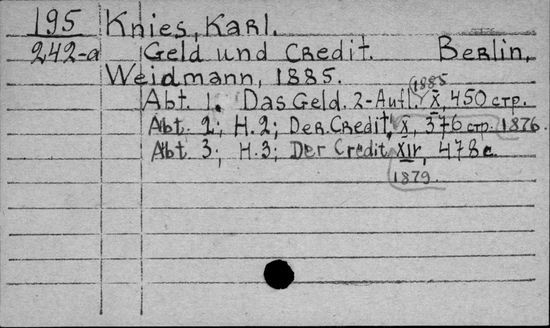 195 Knies, Karl.
242-a Geld und Credit. Berlin,
Weidmann, 1885.
1885
Abt. 1. Das Geld. 2-Aufl. X, 450 стр.
Abt. 2; H. 2; Der Credit, X, 376 стр. 1876.
Abt 3; H. 3; Der Credit, XIV, 478 с.
1879.